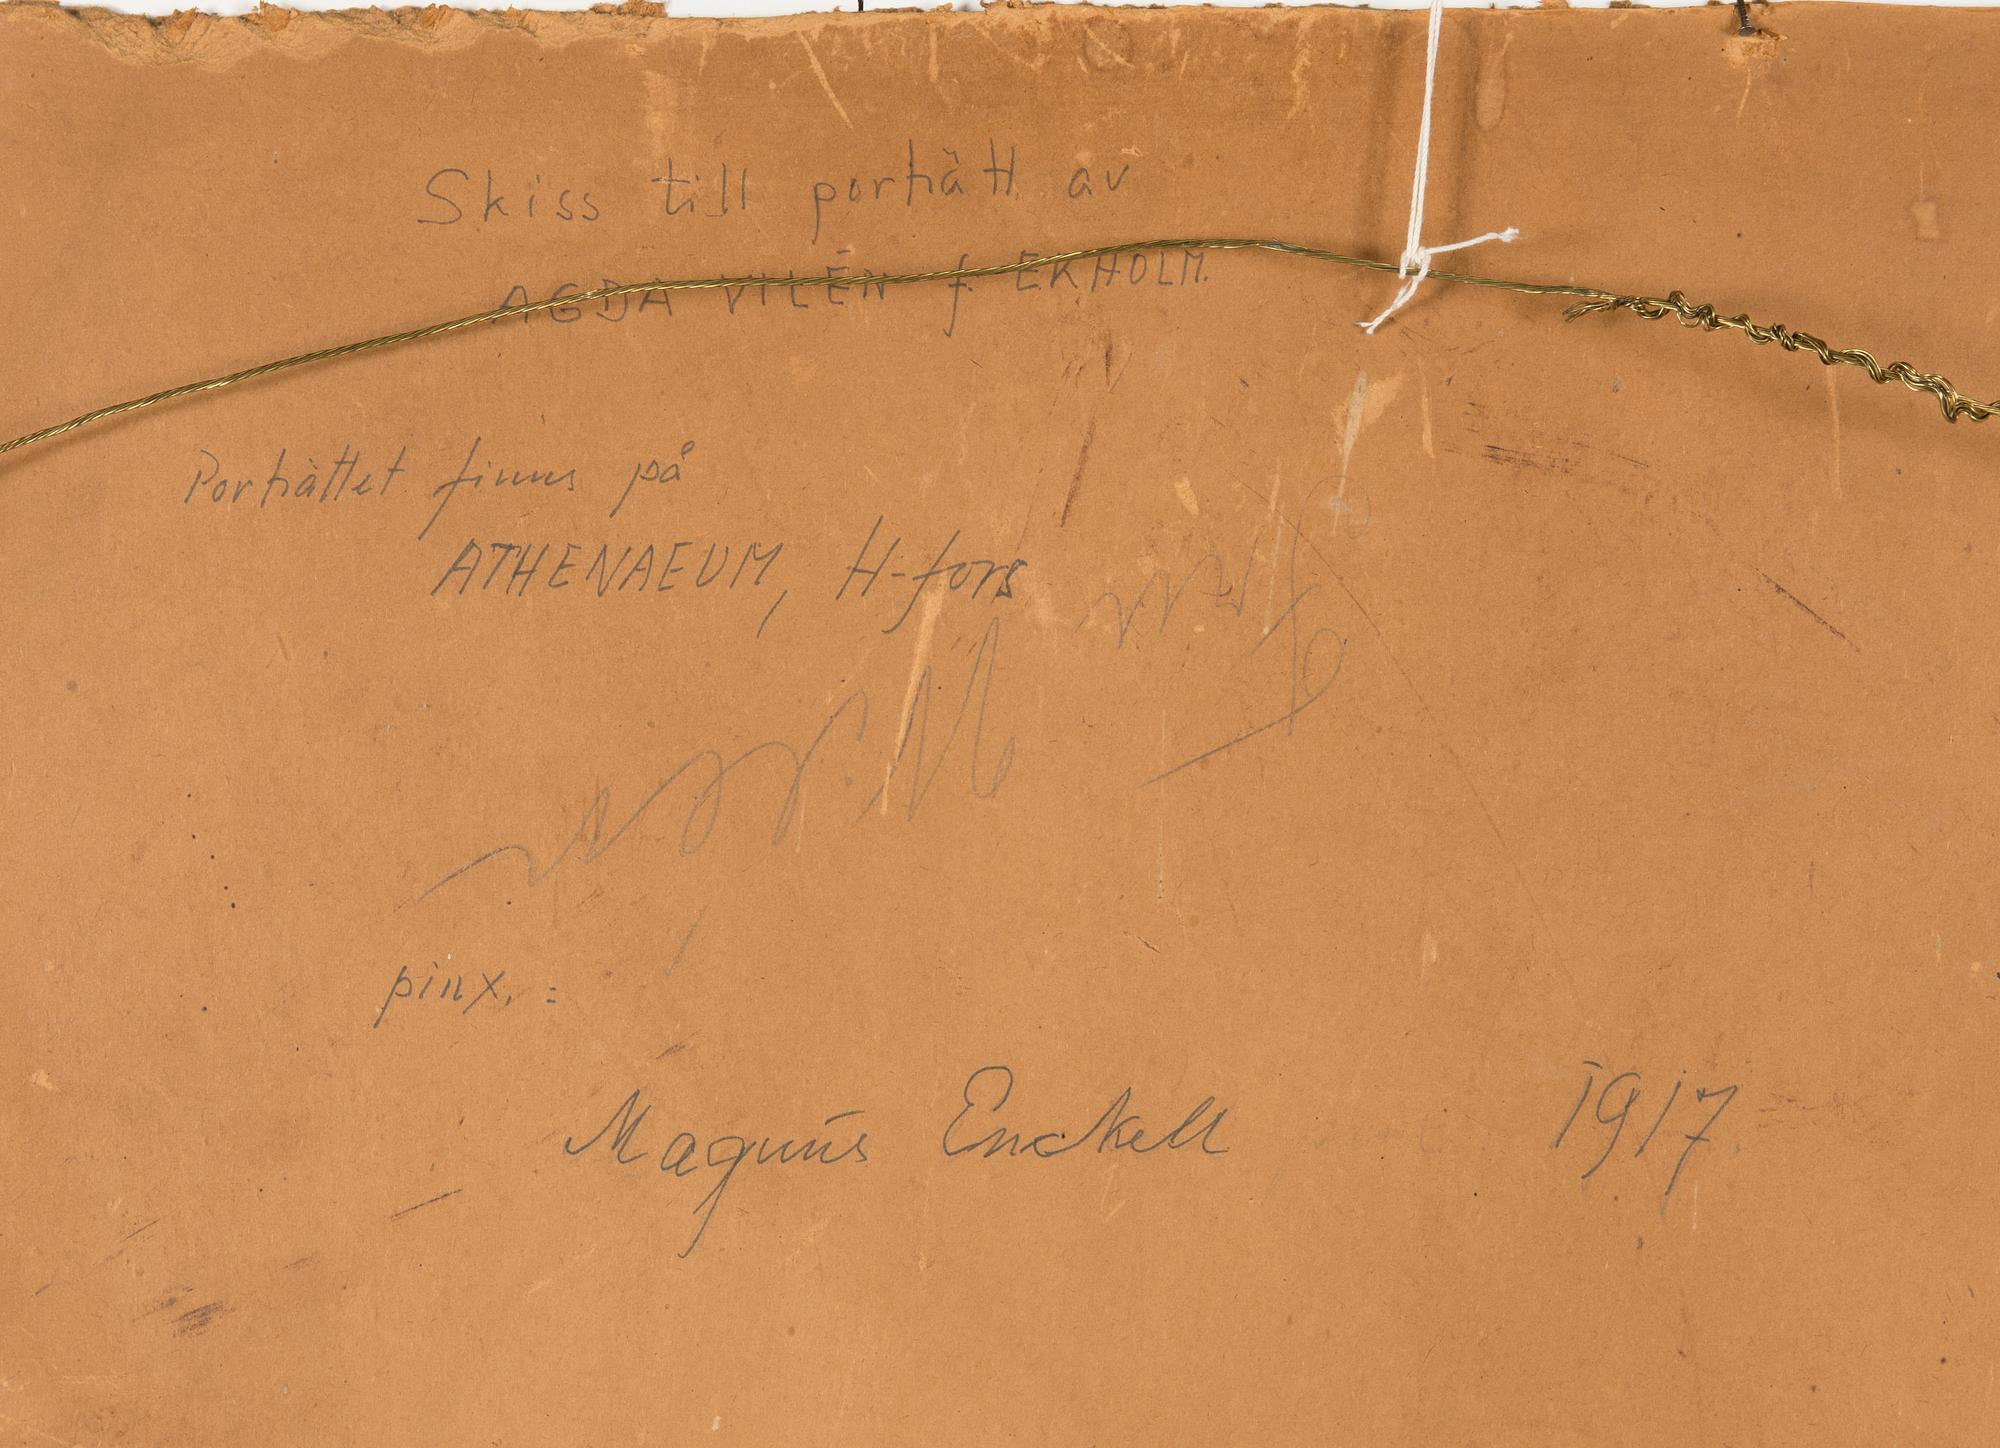 Skiss till porträtt av
AGDA VILÉN f. EKHOLM.
Porträttet finns på
ATHENAEUM, H-fors
Fru
pinx. :
Magnus Enckell 1917